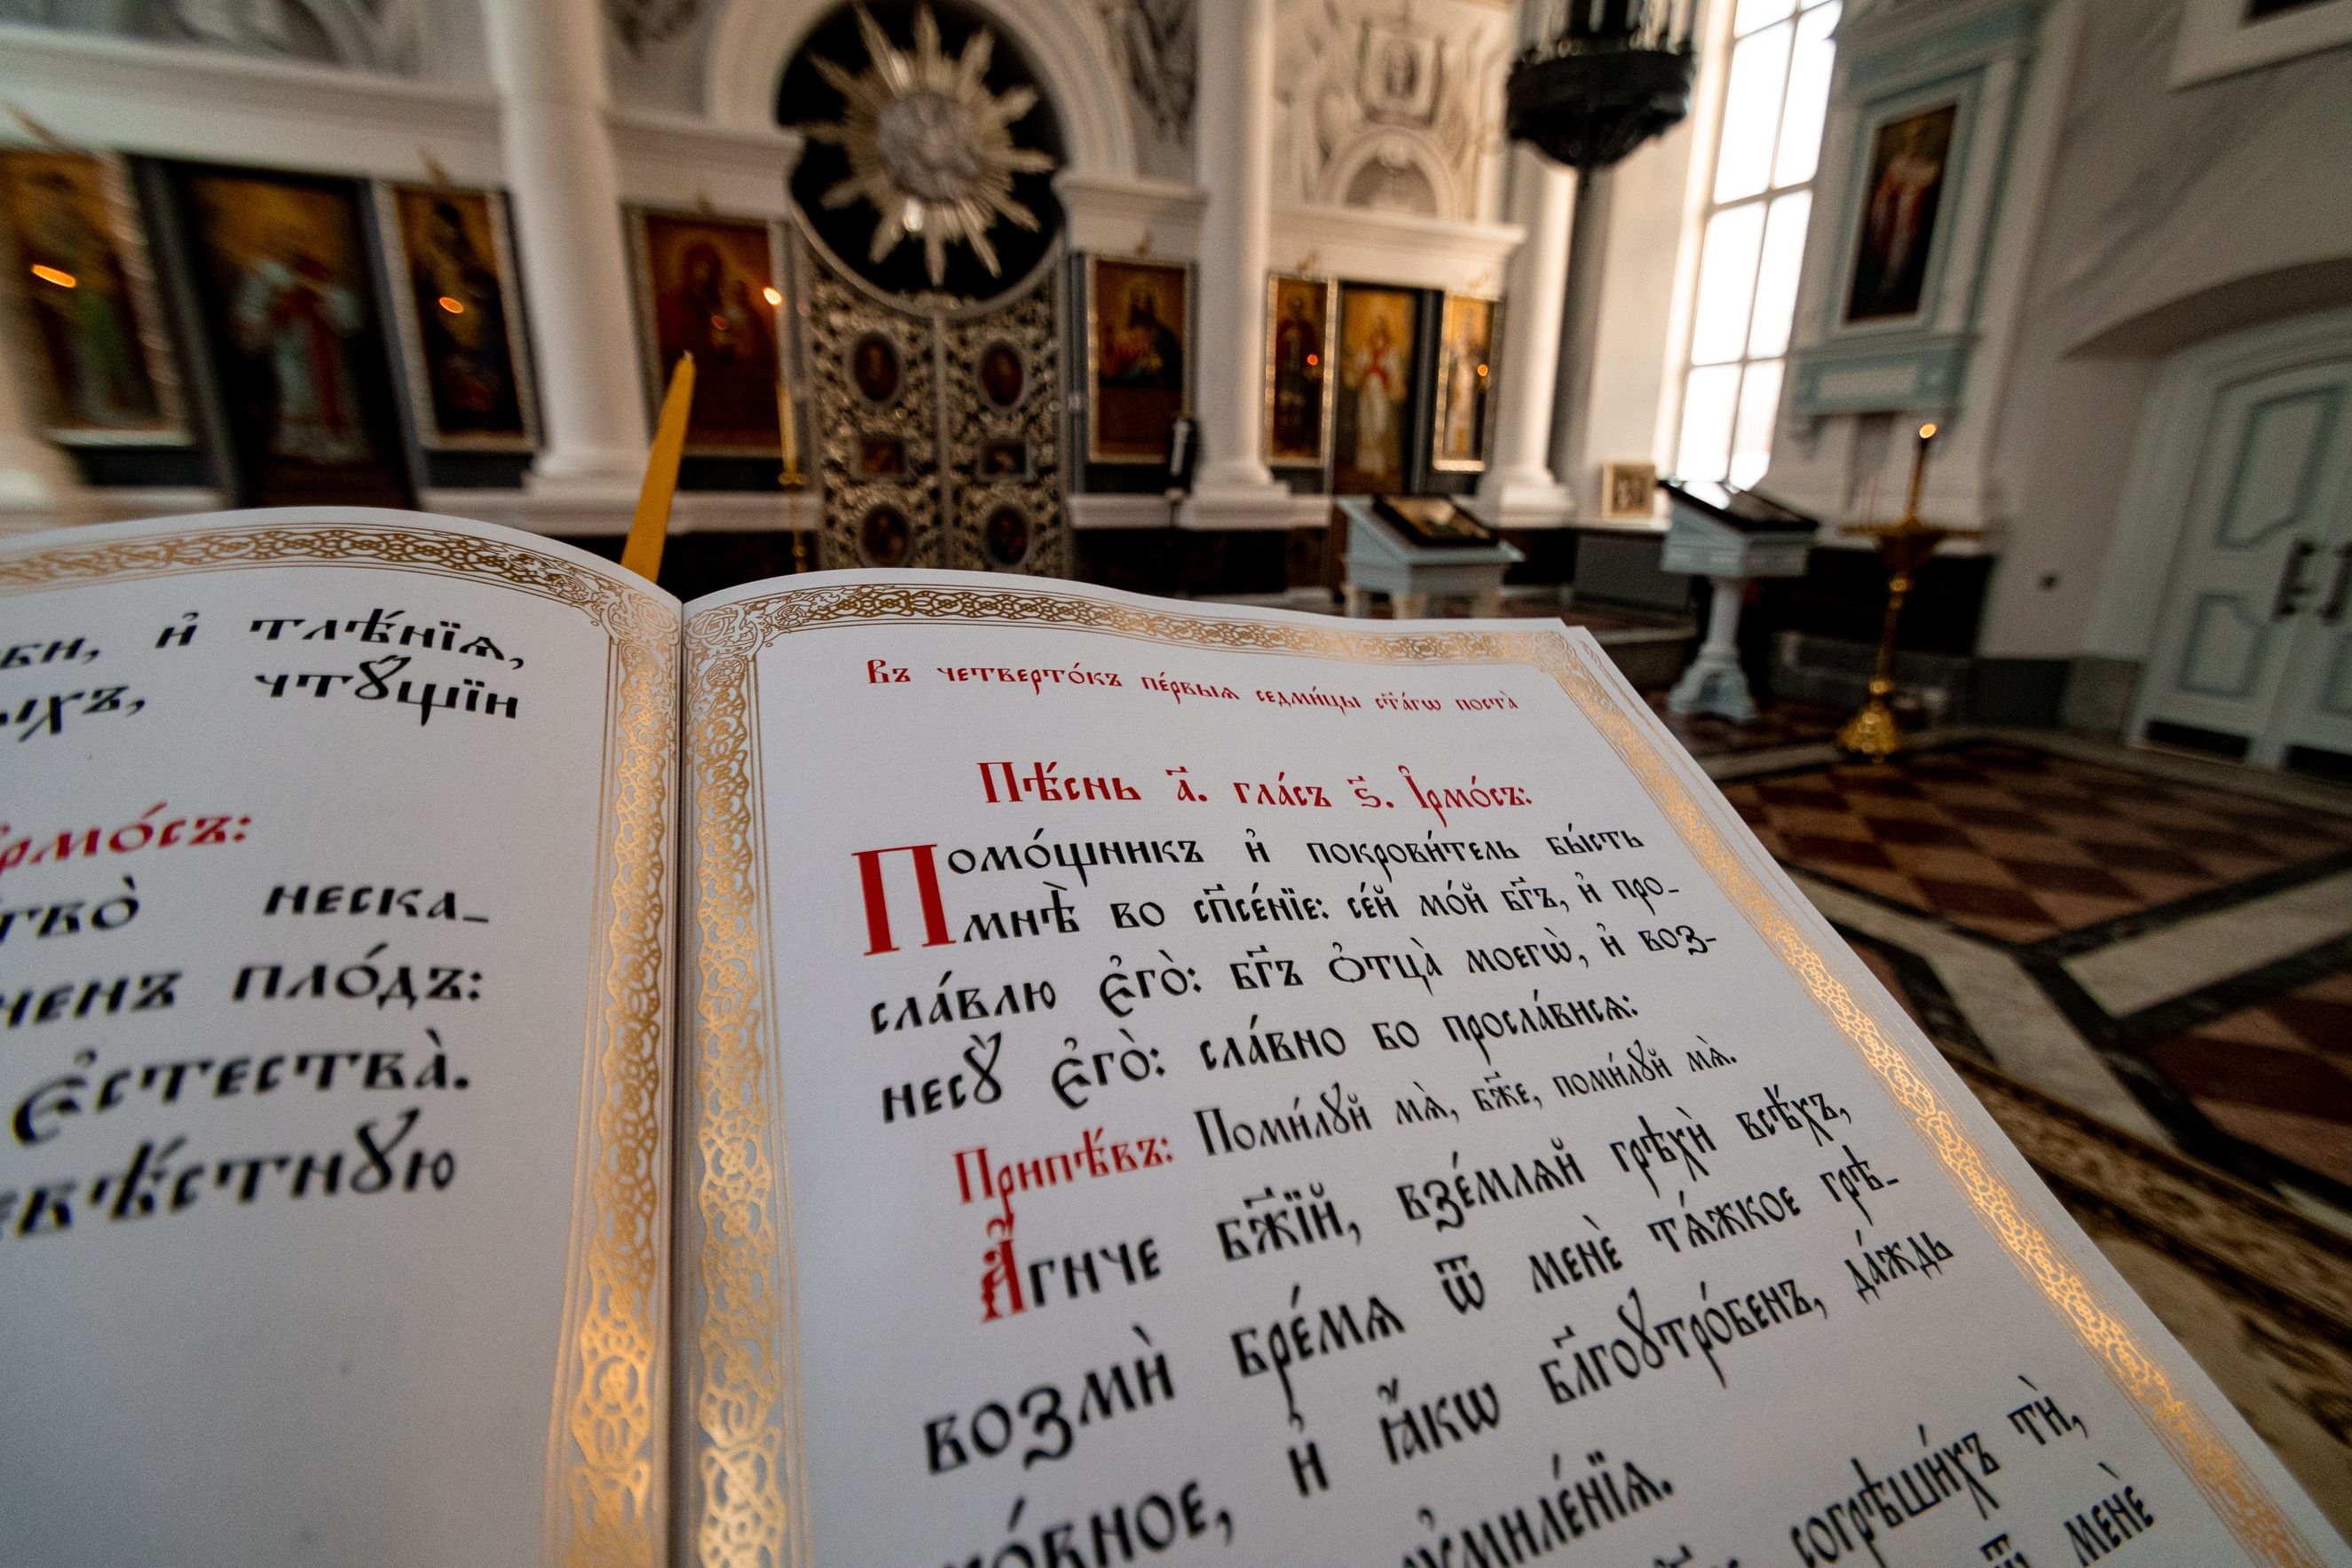 и҆ тлѣ́нїѧ,
чтꙋ́щїи
нескa-
плóдъ:
є҆стества̀.
Въ четверто́къ пе́рвыѧ седми́цы ст҃а́гѡ поста̀
Пѣ́снь а҃. гла́съ ѕ҃. І҆рмо́съ:
Помо́щникъ и҆ покрови́тель бы́сть
мнѣ̀ во сп҃се́нїе: се́й мо́й бг҃ъ, и҆ про-
сла́влю є҆го̀: бг҃ъ ѻ҆тца̀ моегѡ̀, и҆ воз-
несꙋ̀ є҆го̀: сла́вно бо просла́висѧ:
Припѣ́въ: Поми́лꙋй мѧ̀, бж҃е, поми́лꙋй мѧ̀.
А҆́гнче бж҃їй, взе́млѧй грѣхѝ всѣ́хъ,
возмѝ бре́мѧ ѿ менѐ тѧ́жкое грѣ-
хо́вное, и҆ ꙗ҆́кѡ бл҃гоꙋтро́бенъ, да́ждь
ᲂу҆миле́нїѧ.
согрѣши́хъ тѝ,
менѐ